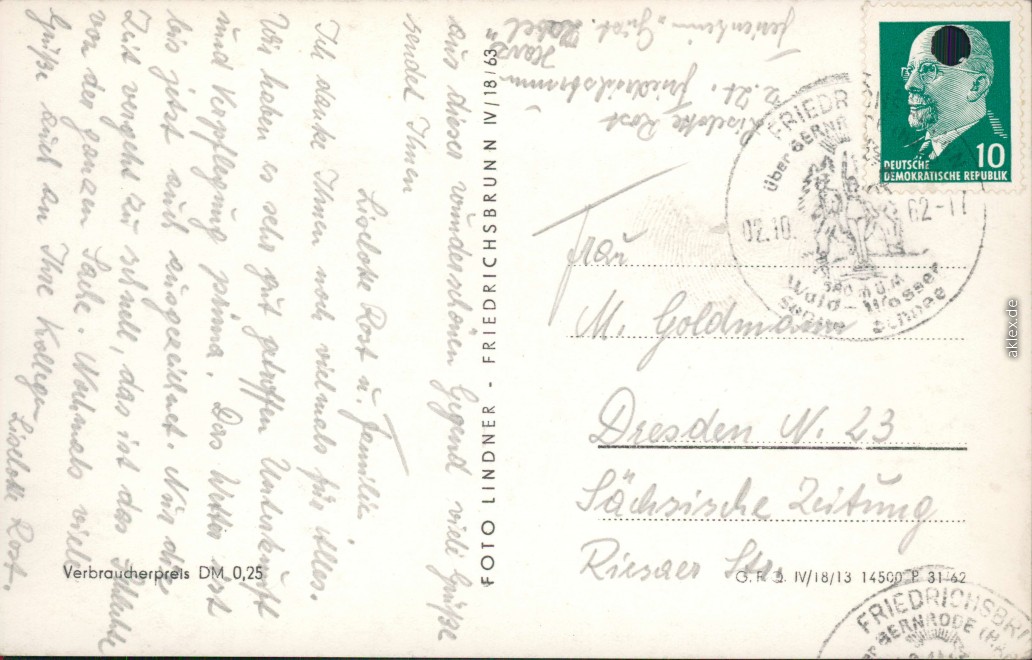 Liselotte Rost
z. Zt. Friedrichsbrunn
Harz
Ferienheim
aus dieser wunderschönen Gegend viele Grüße
sendet Ihnen
Liselotte Rost u. Familie
Ich danke Ihnen noch vielmals für alles.
Wir haben es sehr gut getroffen Unterkünft
und Verpflegung prima. Das Wetter ist
bis jetzt auch ausgezeichnet. Nur die
Zeit vergeht zu schnell, das ist das Schlechte
von der ganzen Sache. Nochmals viele
Grüße auch an Ihre Kollegen
Liselotte Rost.
FOTO LINDNER - FRIEDRICHSBRUNN IV/18/63
Verbraucherpreis DM 0,25
10
DEUTSCHE
DEMOKRATISCHE REPUBLIK
FRIEDR
über BERNR
02.10. 62-17
580 m ü.M
Wald - Wasser
Sonne Schnee
Frau
M. Goldmann
Dresden N. 23
Sächsische Zeitung
Riesaer Str.
G. F. G. IV/18/13 14500 P 31 62
FRIEDRICHSBR
BERNRODE (HA
aklex.de